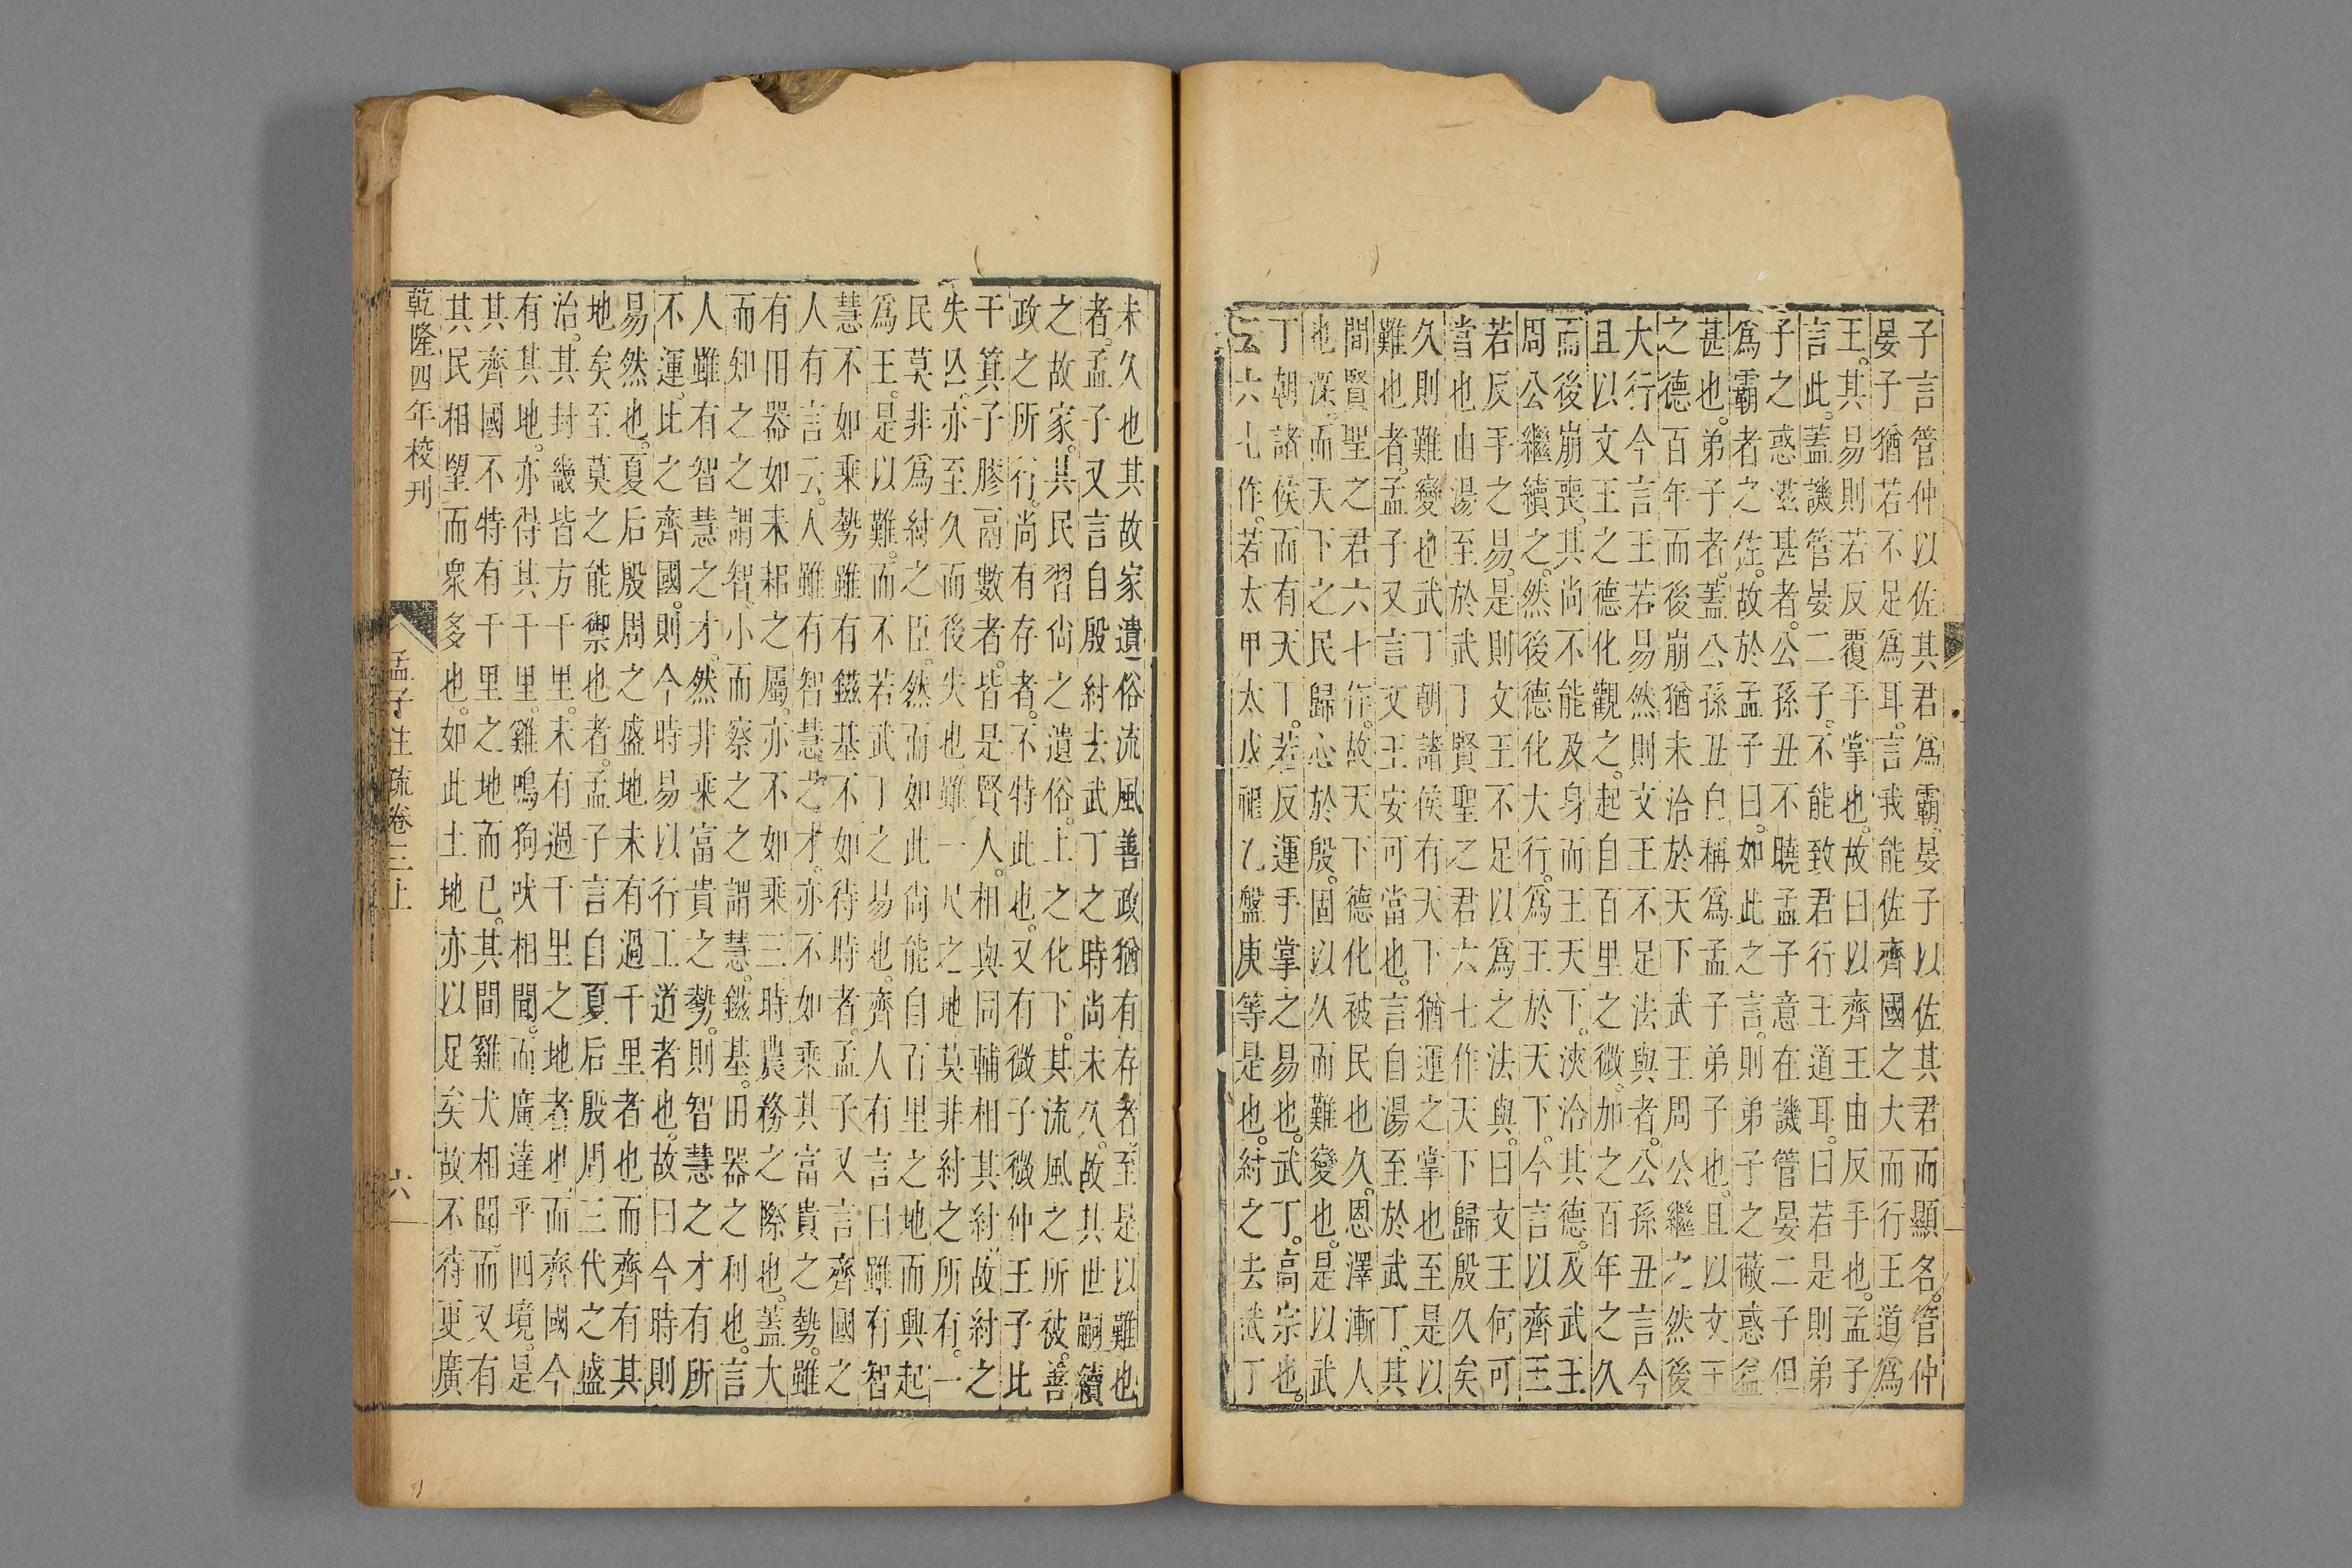 子言管仲以佐其君爲霸晏子以佐其君而顯名管仲
晏子猶若不足爲耳言我能佐齊國之大而行王道爲
王其易則若反覆手掌也故曰以齊王由反手也孟子
言此蓋譏管晏二子不能致君行王道耳曰若是則弟
子之惑滋甚者公孫丑不曉孟子意在譏管晏二子但
爲霸者之佐故於孟子曰如此之言則弟子之蔽惑益
甚也弟子者蓋公孫丑自稱爲孟子弟子也且以文王
之德百年而後崩猶未治於天下武王周公繼之然後
大行今言王若易然則文王不足法與者公孫丑言今
且以文王之德化觀之起自百里之微加之百年之久
而後崩喪其尚不能及身而王天下浹洽其德及武王
周公繼續之然後德化大行爲王於天下今言以齊王
若反手之易是則文王不足以爲之法與曰文王何可
當也由湯至於武丁賢聖之君六七作天下歸殷久矣
久則難變也武丁朝諸侯有天下猶運之掌也至是以
難也者孟子又言文王安可當也言自湯至於武丁其
間賢聖之君六十作故天下德化被民也久恩澤漸人
也深而天下之民歸心於殷固以久而難變也是以武
丁朝諸侯而有天下若反運手掌之易也武丁高宗也
云六七作若太甲太戊祖乙盤庚等是也紂之去武丁
未久也其故家遺俗流風善政猶有存者至是以難也
者孟子又言自殷紂去武丁之時尚未久故其世嗣續
之故家其民習尚之遺俗上之化下其流風之所被善
政之所行尚有存者不特此也又有微子微仲王子比
干箕子膠鬲數者皆是賢人相與同輔相其紂故紂之
失亾亦至久而後失也雖一尺之地莫非紂之所有一
民莫非爲紂之臣然而如此尚能自百里之地而興起
爲王是以難而不若武丁之易也齊人有言曰雖有智
慧不如乘勢雖有鎡基不如待時者孟子又言齊國之
人有言云人雖有智慧之才亦不如乘其富貴之勢雖
有田器如耒耜之屬亦不如乘三時農務之際也蓋大
而知之之謂智小而察之之謂慧鎡基田器之利也言
人雖有智慧之才然非乘富貴之勢則智慧之才有所
不運比之齊國則今時易以行王道者也故曰今時則
易然也夏后殷周之盛地未有過千里者也而齊有其
地矣至莫之能禦也者孟子言自夏后殷周三代之盛
治其封畿皆方千里未有過千里之地者也而齊國今
有其地亦得其千里雞鳴狗吠相聞而廣達乎四境是
其齊國不特有千里之地而已其間雞犬相聞而又有
其民相望而衆多也如此土地亦以足矣故不待更廣
乾隆四年校刊
孟子注疏卷三上
六